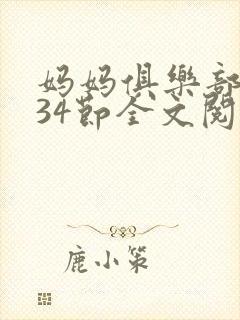 妈妈俱乐部
34節全文閱
鹿小策